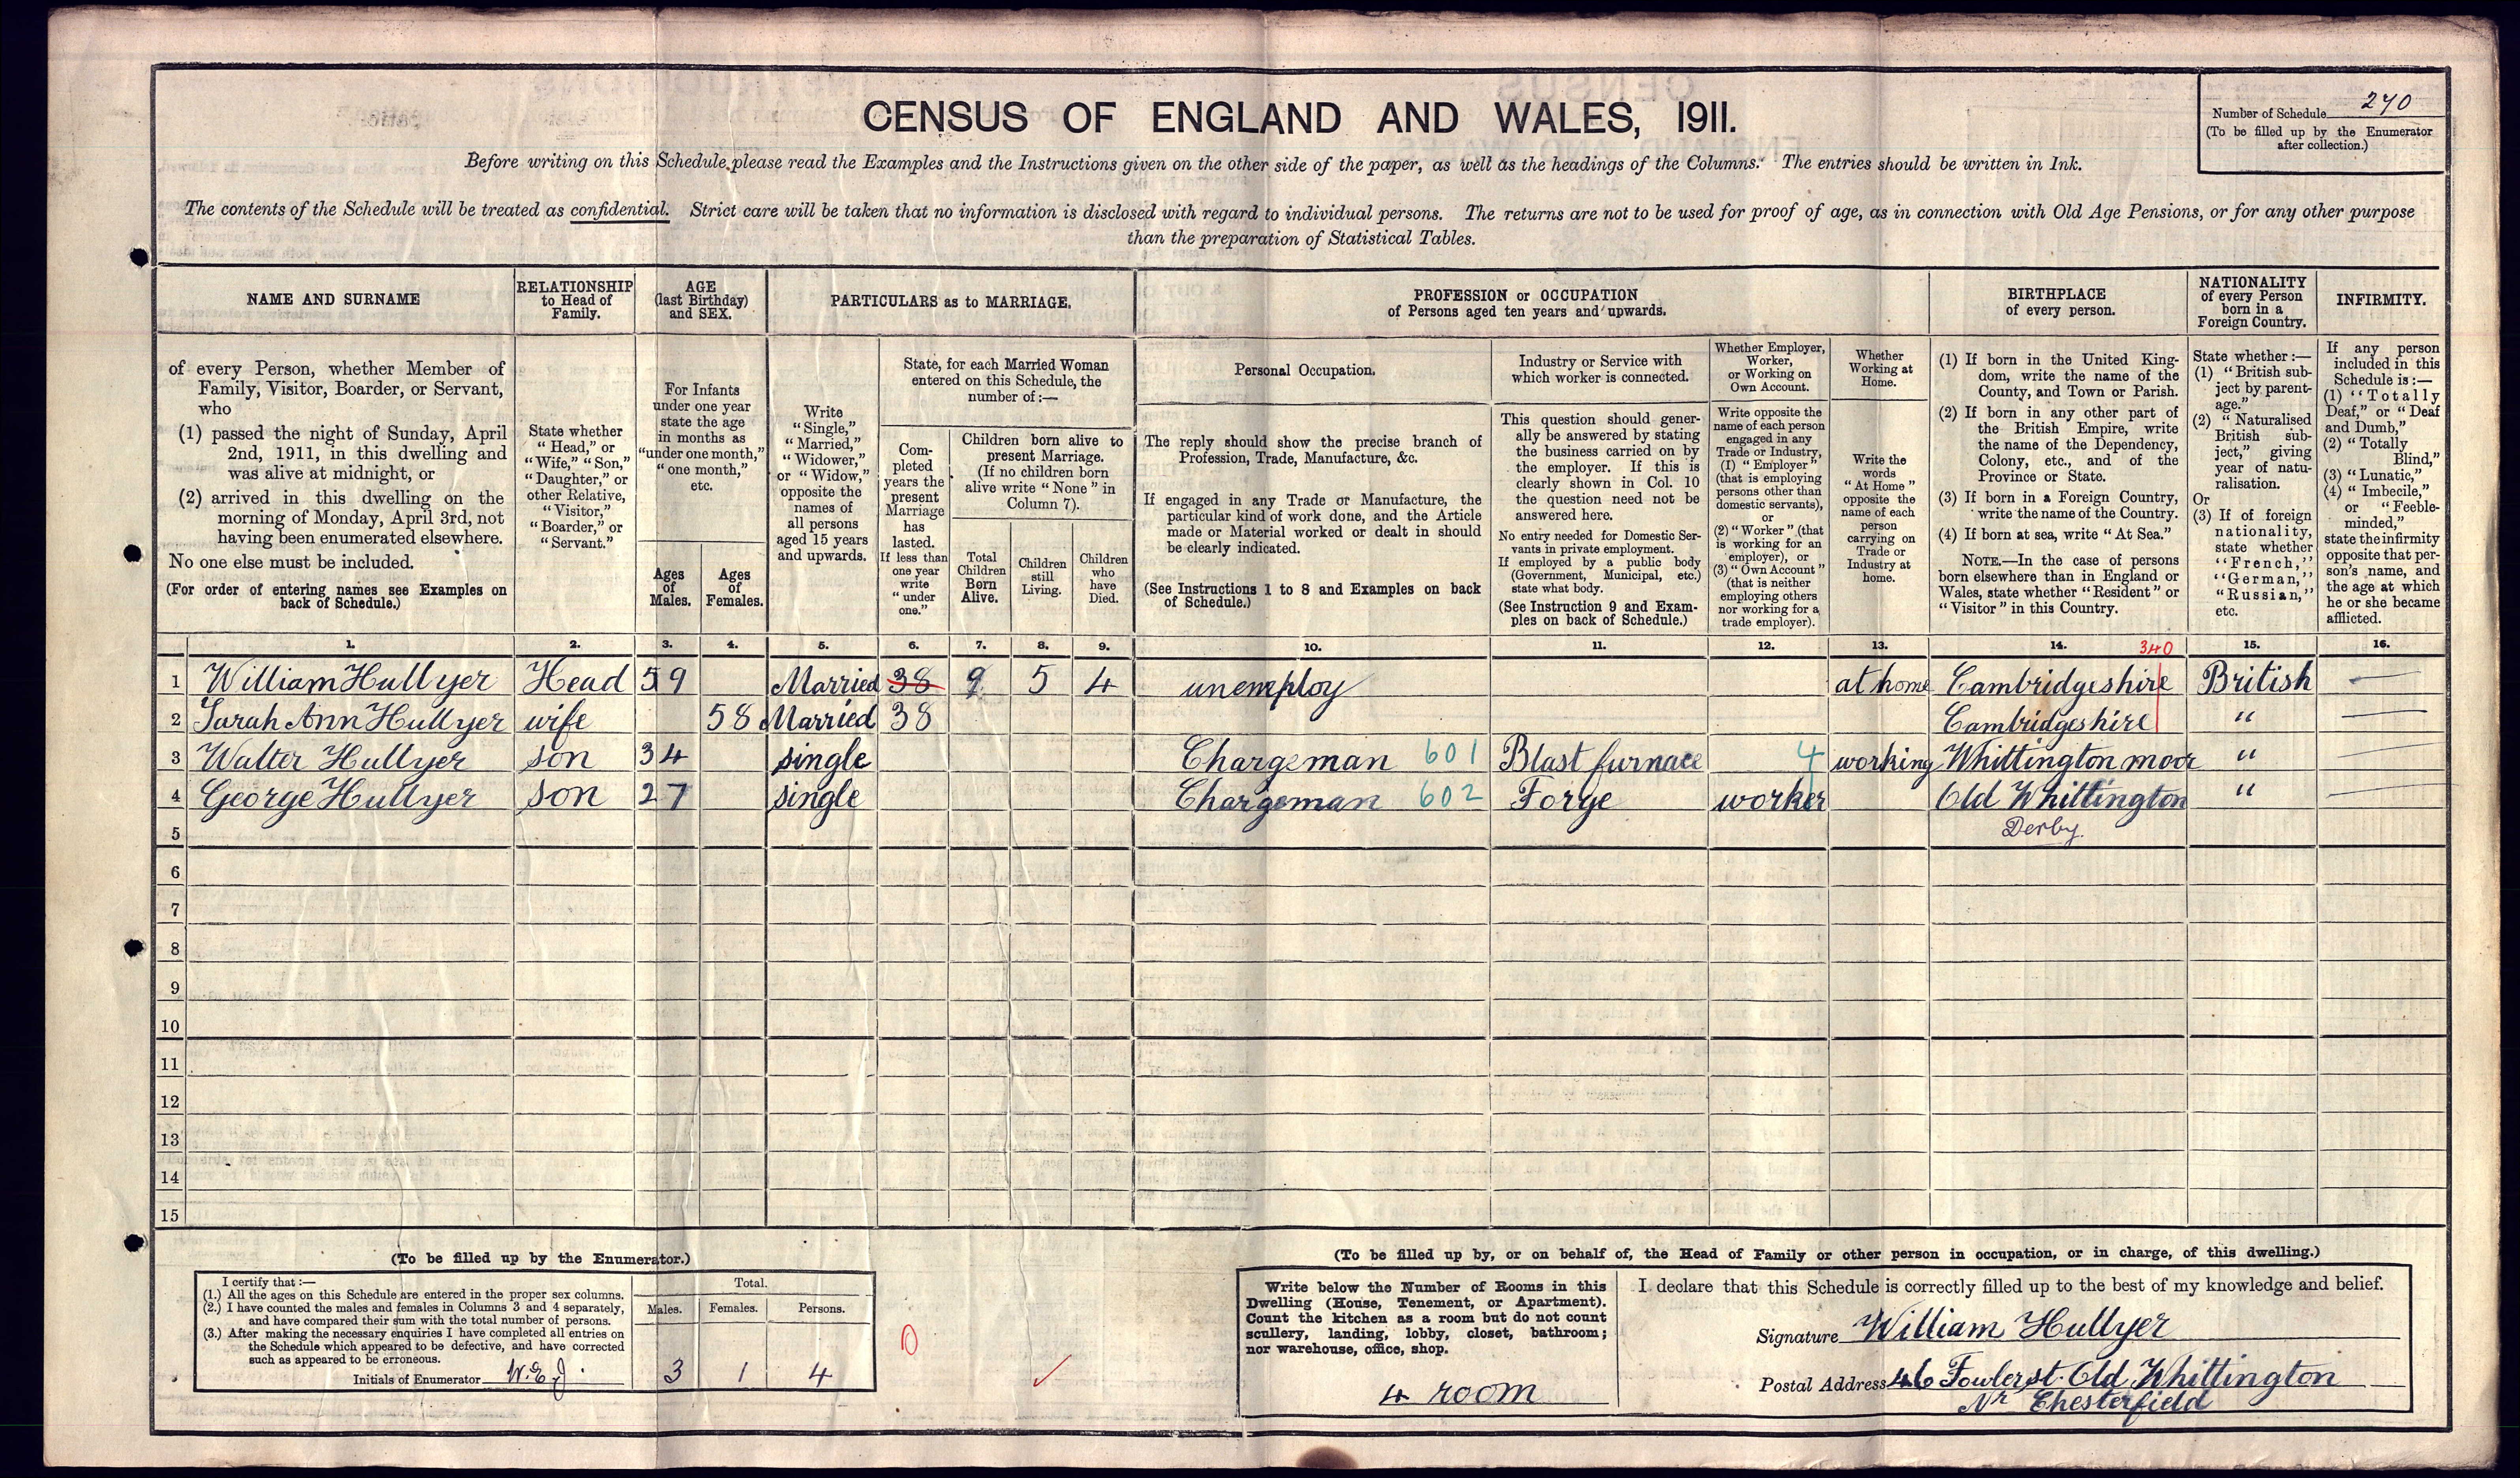 CENSUS OF ENGLAND AND WALES, 1911.
Number of Schedule 270
(To be filled up by the Enumerator
after collection.)
Before writing on this Schedule please read the Examples and the Instructions given on the other side of the paper, as well as the headings of the Columns. The entries should be written in Ink.
The contents of the Schedule will be treated as confidential. Strict care will be taken that no information is disclosed with regard to individual persons. The returns are not to be used for proof of age, as in connection with Old Age Pensions, or for any other purpose
than the preparation of Statistical Tables.
NAME AND SURNAME
of every Person, whether Member of
Family, Visitor, Boarder, or Servant,
who
(1) passed the night of Sunday, April
2nd, 1911, in this dwelling and
was alive at midnight, or
(2) arrived in this dwelling on the
morning of Monday, April 3rd, not
having been enumerated elsewhere.
No one else must be included.
(For order of entering names see Examples on
back of Schedule.)
RELATIONSHIP
to Head of
Family.
State whether
"Head," or
"Wife," "Son,"
"Daughter," or
other Relative,
"Visitor,"
"Boarder," or
"Servant."
AGE
(last Birthday)
and SEX.
For Infants
under one year
state the age
in months as
"under one month,"
"one month,"
etc.
Ages
of
Males.
Ages
of
Females.
PARTICULARS as to MARRIAGE.
Write
"Single,"
"Married,"
"Widower,"
or "Widow,"
opposite the
names of
all persons
aged 15 years
and upwards.
State, for each Married Woman
entered on this Schedule, the
number of:—
Com-
pleted
years the
present
Marriage
has
lasted.
If less than
one year
write
"under
one."
Children born alive to
present Marriage.
(If no children born
alive write "None" in
Column 7).
Total
Children
Born
Alive.
Children
still
Living.
Children
who
have
Died.
PROFESSION or OCCUPATION
of Persons aged ten years and upwards.
Personal Occupation.
The reply should show the precise branch of
Profession, Trade, Manufacture, &c.
If engaged in any Trade or Manufacture, the
particular kind of work done, and the Article
made or Material worked or dealt in should
be clearly indicated.
(See Instructions 1 to 8 and Examples on back
of Schedule.)
Industry or Service with
which worker is connected.
This question should gener-
ally be answered by stating
the business carried on by
the employer. If this is
clearly shown in Col. 10
the question need not be
answered here.
No entry needed for Domestic Ser-
vants in private employment.
If employed by a public body
(Government, Municipal, etc.)
state what body.
(See Instruction 9 and Exam-
ples on back of Schedule.)
Whether Employer,
Worker,
or Working on
Own Account.
Write opposite the
name of each person
engaged in any
Trade or Industry,
(1) "Employer"
(that is employing
persons other than
domestic servants),
or
(2) "Worker" (that
is working for an
employer), or
(3) "Own Account"
(that is neither
employing others
nor working for a
trade employer).
Whether
Working at
Home.
Write the
words
"At Home"
opposite the
name of each
person
carrying on
Trade or
Industry at
home.
BIRTHPLACE
of every person.
(1) If born in the United King-
dom, write the name of the
County, and Town or Parish.
(2) If born in any other part of
the British Empire, write
the name of the Dependency,
Colony, etc., and of the
Province or State.
(3) If born in a Foreign Country,
write the name of the Country.
(4) If born at sea, write "At Sea."
NOTE.—In the case of persons
born elsewhere than in England or
Wales, state whether "Resident" or
"Visitor" in this Country.
NATIONALITY
of every Person
born in a
Foreign Country.
State whether:—
(1) "British sub-
ject by parent-
age."
(2) "Naturalised
British sub-
ject," giving
year of natu-
ralisation.
Or
(3) If of foreign
nationality,
state whether
"French,"
"German,"
"Russian,"
etc.
INFIRMITY.
If any person
included in this
Schedule is:—
(1) "Totally
Deaf," or "Deaf
and Dumb,"
(2) "Totally
Blind,"
(3) "Lunatic,"
(4) "Imbecile,"
or "Feeble-
minded,"
state the infirmity
opposite that per-
son's name, and
the age at which
he or she became
afflicted.
1. 2. 3. 4. 5. 6. 7. 8. 9. 10. 11. 12. 13. 14. 340 15. 16.
1 William Hullyer Head 59 Married 38 9 5 4 unemploy at home Cambridgeshire British —
2 Sarah Ann Hullyer wife 58 Married 38 Cambridgeshire " —
3 Walter Hullyer son 34 single Chargeman 601 Blast furnace 4 working Whittington moor " —
4 George Hullyer son 27 single Chargeman 602 Forge worker Old Whittington " —
5 Derby.
6
7
8
9
10
11
12
13
14
15
(To be filled up by the Enumerator.)
I certify that:—
(1.) All the ages on this Schedule are entered in the proper sex columns.
(2.) I have counted the males and females in Columns 3 and 4 separately,
and have compared their sum with the total number of persons.
(3.) After making the necessary enquiries I have completed all entries on
the Schedule which appeared to be defective, and have corrected
such as appeared to be erroneous.
Initials of Enumerator W.E.J.
Total.
Males. Females. Persons.
3 1 4
0
(To be filled up by, or on behalf of, the Head of Family or other person in occupation, or in charge, of this dwelling.)
Write below the Number of Rooms in this
Dwelling (House, Tenement, or Apartment).
Count the kitchen as a room but do not count
scullery, landing, lobby, closet, bathroom;
nor warehouse, office, shop.
4 room
I declare that this Schedule is correctly filled up to the best of my knowledge and belief.
Signature William Hullyer
Postal Address 46 Fowler st. Old Whittington
Nr Chesterfield